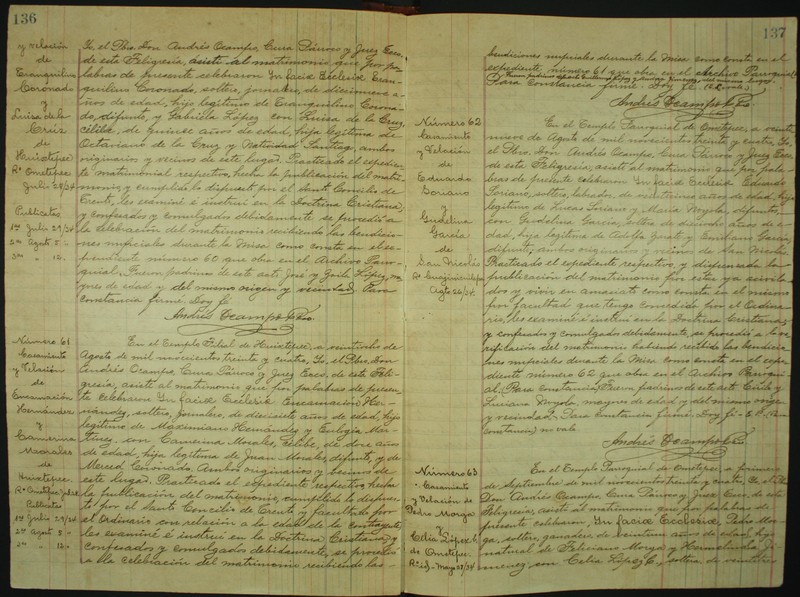 136
y velación
de
Evangelino
Coronado
y
Luisa de la
Cruz
de
Huixtepec
Ometepec
Julio 28/34
Publicatas
1ª Julio 29/34
2ª Agosto 5
3ª " 12
Yo, el Pbro. Don Andrés Ocampo, Cura Párroco y Juez Ecco.
de esta Feligresía, asistí al matrimonio que por pa-
labras de presente celebraron In facie Eclesiæ Evan-
gelino Coronado, soltero, jornalero, de diecinueve a-
ños de edad, hijo legítimo de Evangelino Corona-
do, difunto, y Gabriela López con Luisa de la Cruz,
célibe, de quince años de edad, hija legítima de
Octaviano de la Cruz y Natividad Santiago, ambos
originarios y vecinos de este lugar. Practicado el expedien-
te matrimonial respectivo, hecha la publicación del matri-
monio, y cumplido lo dispuesto por el Santo Concilio de
Trento, les examiné e instruí en la Doctrina Cristiana,
y confesados y comulgados debidamente se procedió a
la celebración del matrimonio recibiendo las bendicio-
nes nupciales durante la Misa como consta en el ex-
pediente número 60 que obra en el Archivo Parro-
quial. Fueron padrinos de este acto José y López, ma-
yores de edad y del mismo origen y vecindad. Para
constancia firmé. Doy fé.
Andrés Ocampo Pbro.
Número 61
Casamiento
y Velación
de
Encarnación
Hernández
y
Camerina
Morales
de
Huixtepec.
Publicatas
1ª Julio 29/34
2ª Agosto 5
3ª " 12
En el Templo Filial de Huixtepec, a veintiocho de
Agosto de mil novecientos treinta y cuatro, Yo, el Pbro. Don
Andrés Ocampo, Cura Párroco y Juez Ecco. de esta Feli-
gresía, asistí al matrimonio que por palabras de presen-
te celebraron In facie Eclesiæ Encarnación Her-
nández, soltero, jornalero, de diecisiete años de edad, hijo
legítimo de Maximiano Hernández y Eulogia Mar-
tínez, con Camerina Morales, célibe, de doce años
de edad, hija legítima de Juan Morales, difunto, y de
Merced Coronado, ambos originarios y vecinos de
este lugar. Practicado el expediente respectivo, hecha
la publicación del matrimonio, cumplido lo dispues-
to por el Santo Concilio de Trento y facultado por
el Ordinario con relación a la edad de la contrayente
les examiné e instruí en la Doctrina Cristiana, y
confesados y comulgados debidamente, se procedió
a la celebración del matrimonio recibiendo las
137
bendiciones nupciales durante la Misa como consta en el
expediente número 61 que obra en el Archivo Parroquial.
Para constancia firmé. Doy fé.
Andrés Ocampo Pbro.
Número 62
Casamiento
y Velación
de
Eduardo
Soriano
y
Gudelina
García
de
San Nicolás
Agto 26/34
En el Templo Parroquial de Ometepec, a veinti-
nueve de Agosto de mil novecientos treinta y cuatro, Yo,
el Pbro. Don Andrés Ocampo, Cura Párroco y Juez Ecco.
de esta Feligresía, asistí al matrimonio que por pala-
bras de presente celebraron In facie Eclesiæ Eduardo
Soriano, soltero, labrador, de veintinueve años de edad, hijo
legítimo de Lucas Soriano y María Noyola, difuntos,
con Gudelina García, soltera, de dieciocho años de e-
dad, hija legítima de Adolfo y García,
difunta, ambos originarios y vecinos de San Nicolás.
Practicado el expediente respectivo, y dispensada la
publicación del matrimonio por estar ya
y vivir en amasiato como consta en el mismo
por facultad que tengo concedida por el Ordina-
rio, les examiné e instruí en la Doctrina Cristiana,
y confesados y comulgados debidamente, se procedió a la ve-
rificación del matrimonio habiendo recibido las bendicio-
nes nupciales durante la Misa como consta en el expe-
diente número 62 que obra en el Archivo Parroqui-
al. (Para constancia) Fueron padrinos de este acto y
Luciana Noyola, mayores de edad y del mismo origen
y vecindad. Para constancia firmé. Doy fé. (Para
constancia) no vale.
Andrés Ocampo Pbro.
Número 63
Casamiento
y Velación de
Pedro Monga
y
Celia López C.
de Ometepec.
Mayo 28/34
En el Templo Parroquial de Ometepec, a primero
de Septiembre de mil novecientos treinta y cuatro, Yo, el Pbro.
Don Andrés Ocampo, Cura Párroco y Juez Ecco. de esta
Feligresía, asistí al matrimonio que por palabras de
presente celebraron, In facie Ecclesiæ, Pedro Mon-
ga, soltero, ganadero, de veintiun años de edad, hijo
natural de Feliciano Monga y Hermelinda Ji-
menez, con Celia López C., soltera, de veintitres